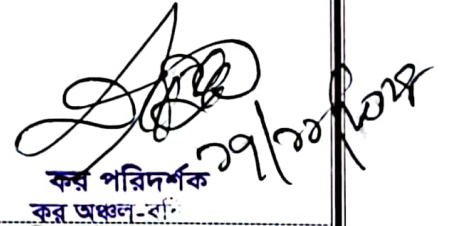 ১৭/১১/২০২৪
কর পরিদর্শক
কর অঞ্চল-